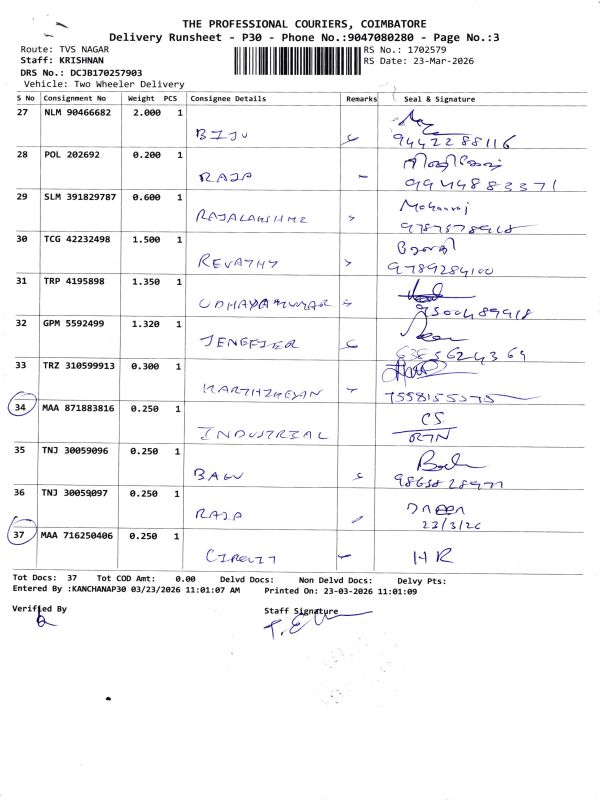 THE PROFESSIONAL COURIERS, COIMBATORE
Delivery Runsheet - P30 - Phone No.:9047080280 - Page No.:3
Route: TVS NAGAR
RS No.: 1702579
Staff: KRISHNAN
RS Date: 23-Mar-2026
DRS No.: DCJB170257903
Vehicle: Two Wheeler Delivery
S No Consignment No Weight PCS Consignee Details Remarks Seal & Signature
27 NLM 90466682 2.000 1
BIJU
9442288116
28 POL 202692 0.200 1
RAJA
9944883371
29 SLM 391829787 0.600 1
Mohanraj
RAJALAKSHMI
30 TCG 42232498 1.500 1
REVATHY
9789284100
31 TRP 4195898 1.350 1
UDHAYAKUMAR
9500489918
32 GPM 5592499 1.320 1
JENEFJER
33 TRZ 310599913 0.300 1
KARTHIKEYAN
34 MAA 871883816 0.250 1
CS
INDUSTRIAL
RTN
35 TNJ 30059096 0.250 1
BABU
36 TNJ 30059097 0.250 1
RAJA
23/3/26
37 MAA 716250406 0.250 1
CIRCUIT HR
Tot Docs: 37 Tot COD Amt: 0.00 Delvd Docs: Non Delvd Docs: Delvy Pts:
Entered By :KANCHANAP30 03/23/2026 11:01:07 AM Printed On: 23-03-2026 11:01:09
Verified By
Staff Signature